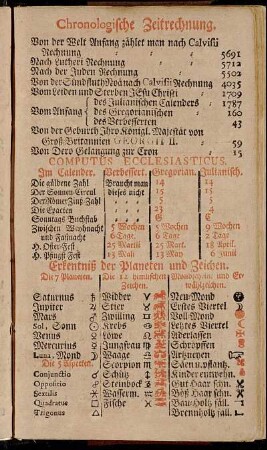 Chronologische Zeitrechnung.
Von der Welt Anfang zählet man nach Calvisii
Rechnung 5691
Nach Lutheri Rechnung 5712
Nach der Juden Rechnung 5502
Nach der Sündfluth Noä nach Calvisii Rechnung 4035
Von Leiden und Sterben JEsu Christi 1709
des Julianischen Calenders 1787
Vom Anfang des Gregorianischen 160
des Verbesserten 43
Von der Geburth Ihro Königl. Majestät von
Groß-Britannien GEORGII II. 59
Von Dero Gelangung zur Cron 15
COMPUTUS ECCLESIASTICUS.
Im Calender. Verbessert. Gregorian. Julianisch.
Die güldene Zahl Braucht man 14 14
Der Sonnen-Circul dieses nicht 15 15
Der Römer Zins-Zahl 5 5
Die Epactae
Sonntags Buchstab G G
Zwischen Weyhnacht 5 Wochen 5 Wochen 9 Wochen
und Fastnacht 6 Tage 6 Tage 2 Tage
H. Oster-Fest 25 Martii 25 Mart. 18 April.
H. Pfingst Fest 13 Mai 13 May 6 Junii
Erkentniß der Planeten und Zeichen.
Die 7 Planeten. Die 12 himmlischen
Zeichen.
Saturnus ♄ Widder ♈ Neu-Mond
Jupiter ♃ Stier ♉ Erstes Viertel
Mars ♂ Zwilling ♊ Voll-Mond
Sol, Sonn ☉ Krebs ♋ Letztes Viertel
Venus ♀ Löwe ♌ Aderlassen
Mercurius ☿ Jungfrau ♍ Schröpffen
Luna, Mond ☽ Waage ♎ Artzneyen
Die 5 Aspecten. Scorpion ♏ Säen u. pflantz.
Conjunctio ☌ Schütz ♐ Kinder entwehn.
Oppositio ☍ Steinbock ♑ Gut Haar schn.
Sextilis ⚹ Wasserm. ♒ Böß Haar schn.
Quadratus □ Fische ♓ Bau-Holtz fäll.
Trigonus △ Brennholtz fäll.